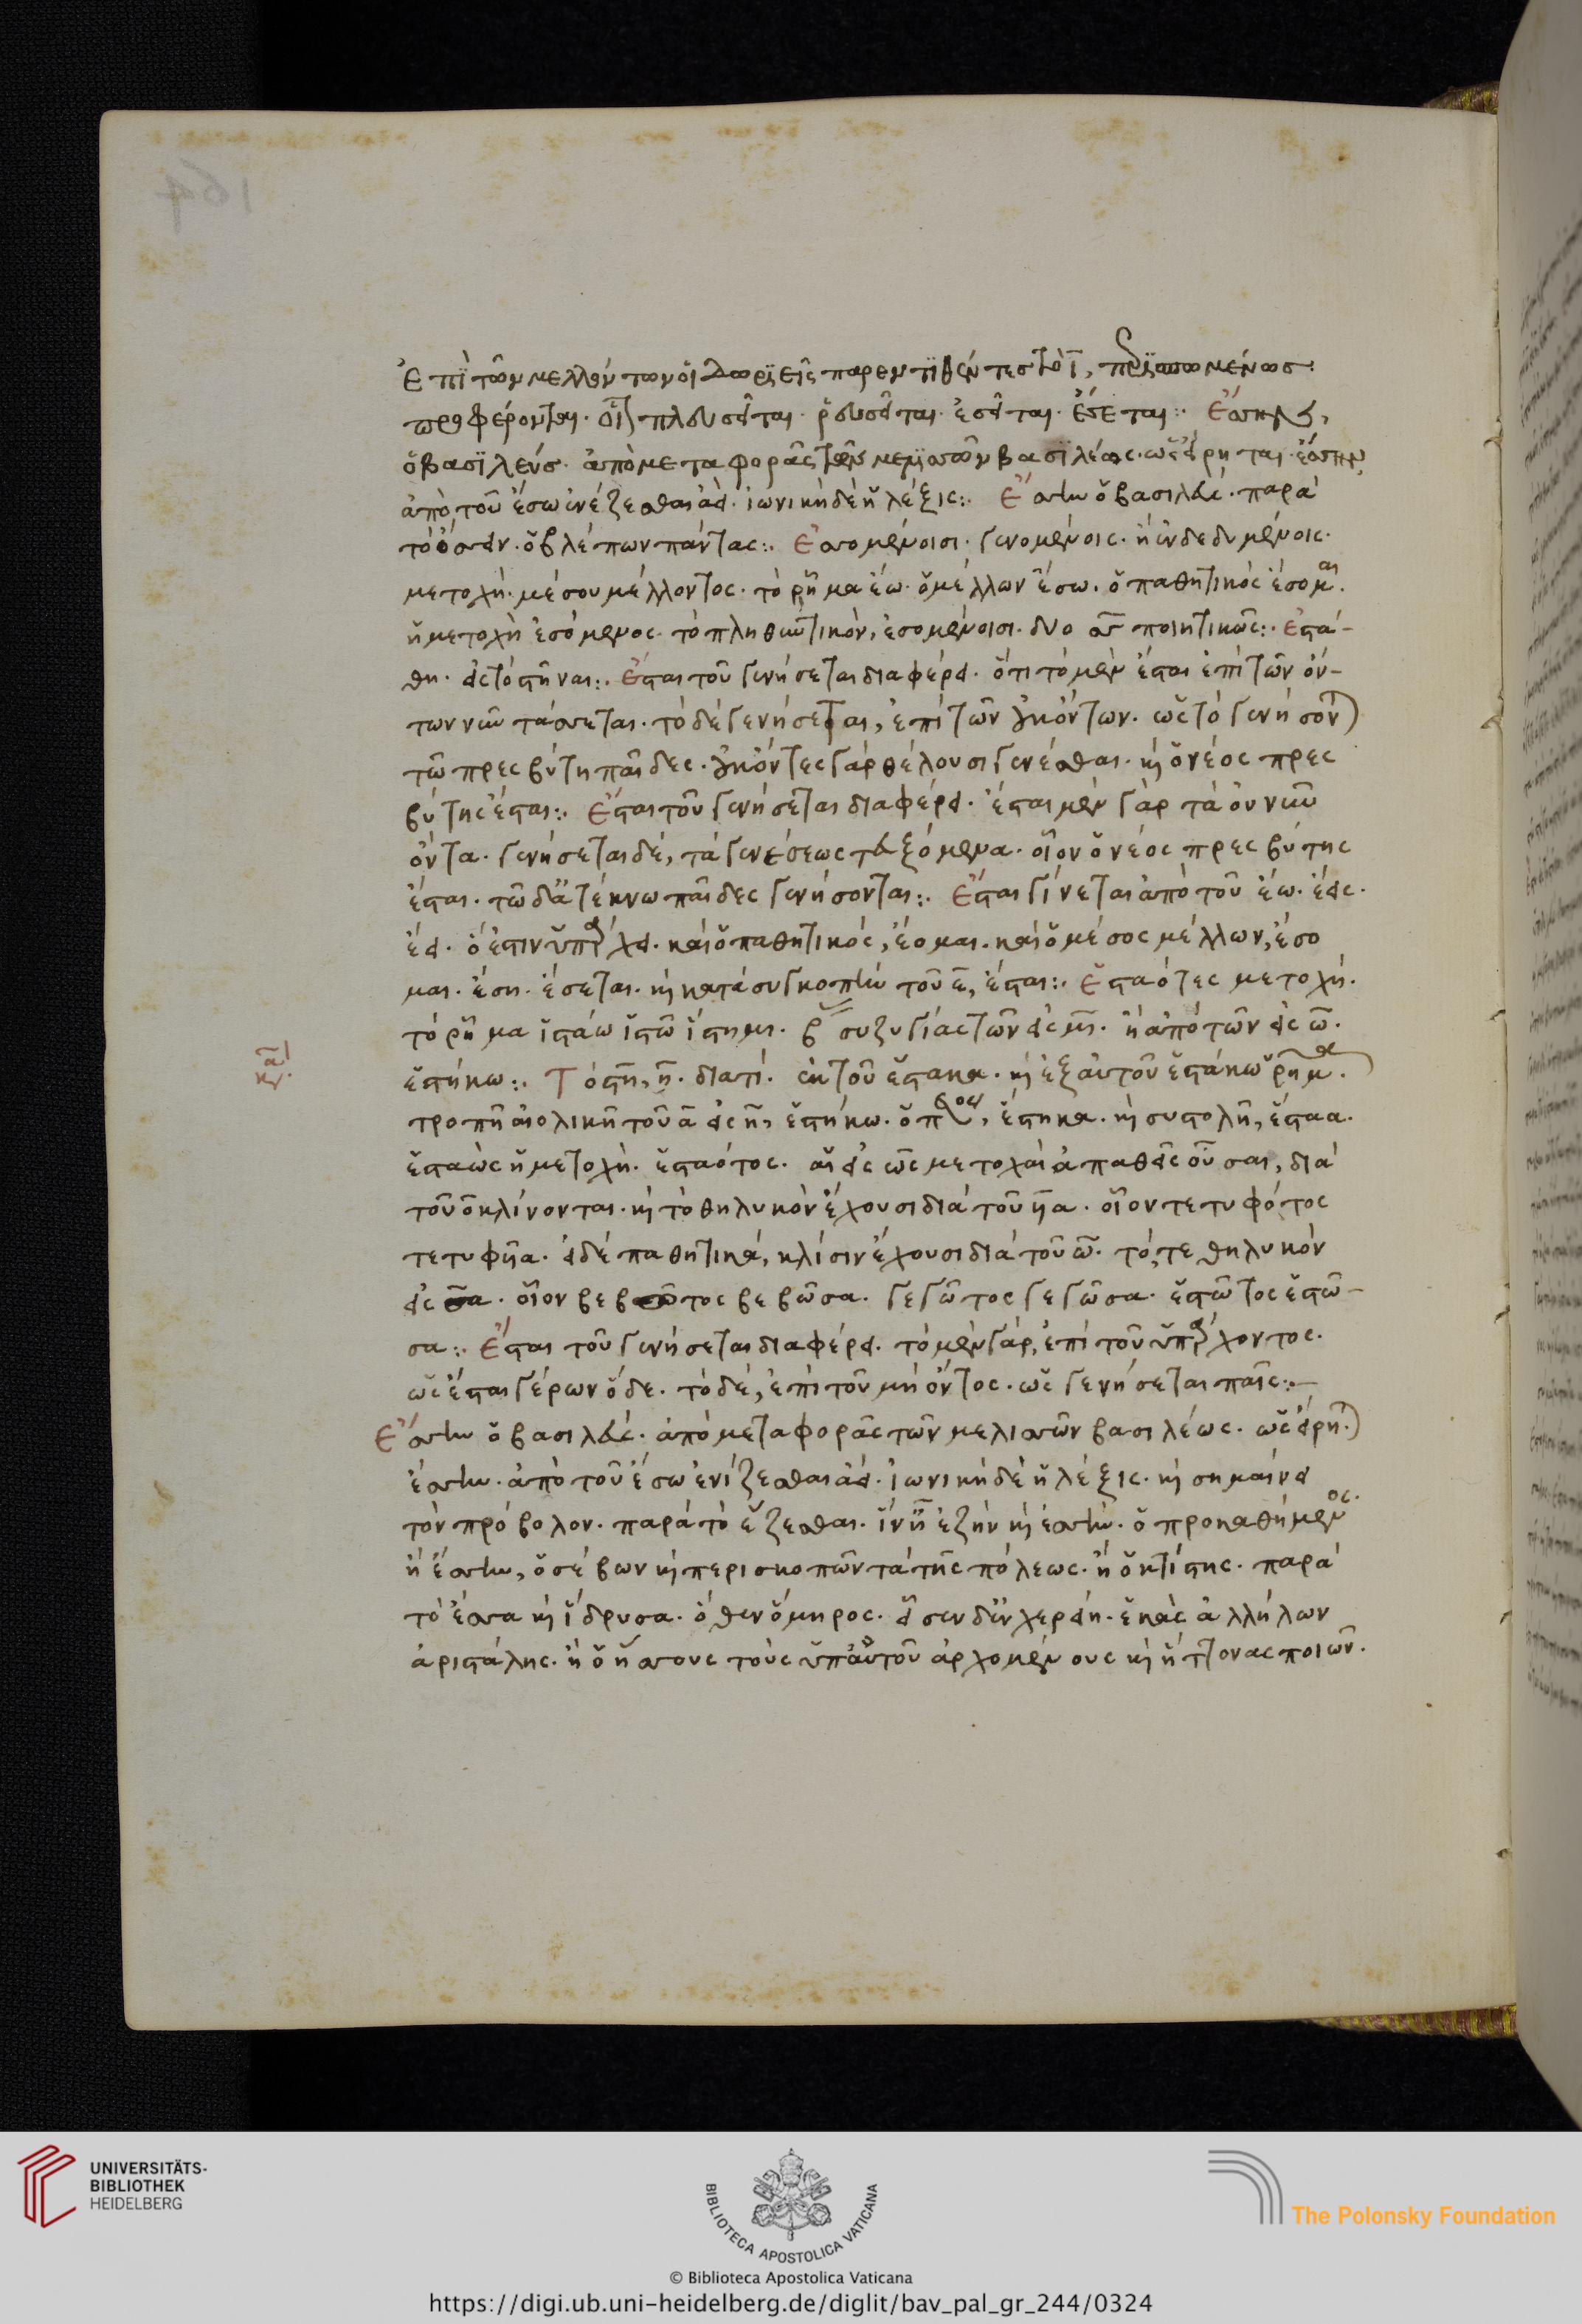 ἐπὶ τῶν μελλόντων οἱ δωριεῖς παρεντιθέντες τὸ ῑ, περισπωμένως
προφέρονται. οἷον πλουσεῖται. ῥουσεῖται. ἐσεῖται. ἔσεται :· Ἐσσὴν,
ὁ βασιλεύς. ἀπὸ μεταφορᾶς τῶν μελισσῶν βασιλέως. ὡς εἴρηται ἐσσὴν
ἀπὸ τοῦ ἔσω ἐνέζεσθαι ἀεί. ἰωνικὴ δὲ ἡ λέξις :· Ἐσσὴν ὁ βασιλεύς. παρὰ
τὸ ὄσσειν. ὁ βλέπων πάντας :· Ἐσομένοισι. γενομένοις. ἢ ἐνδεδυμένοις.
μετοχὴ μέσου μέλλοντος. τὸ ῥῆμα ἕω. ὁ μέλλων ἔσω. ὁ παθητικὸς ἔσομαι.
ἡ μετοχὴ ἐσόμενος. τὸ πληθυντικὸν, ἐσομένοισι. δύο σσ ποιητικῶς :· Ἐστά-
θη. εἰς τὸ στῆναι :· Ἔσται τοῦ γενήσεται διαφέρει. ὅτι τὸ μὲν ἔσται ἐπὶ τῶν ὄν-
των νῦν τάσσεται. τὸ δὲ γενήσεται, ἐπὶ τῶν οὐκ ὄντων. ὡς τὸ γενήσονται
τῶ πρεσβύτη παῖδες. οὐκ ὄντες γὰρ θέλουσι γενέσθαι. καὶ ὁ νέος πρεσ
βύτης ἔσται :· Ἔσται τοῦ γενήσεται διαφέρει. ἔσται μὲν γὰρ τὰ ὂν νῦν
ὄντα. γενήσεται δὲ, τὰ γενέσεως τευξόμενα. οἷον ὁ νέος πρεσβύτης
ἔσται. τῶ δ' ἀτέκνω παῖδες γενήσονται :· Ἔσται γίνεται ἀπὸ τοῦ ἔω. ἔεις.
ἔει. ὅ ἐστιν ὑπάρχει. καὶ ὁ παθητικὸς, ἔομαι. καὶ ὁ μέσος μέλλων, ἔσο
μαι. ἔση. ἔσεται. καὶ κατὰ συγκοπὴν τοῦ ε, ἔσται :· Ἑσταότες μετοχή.
τὸ ῥῆμα ἱστάω ἱστῶ ἵστημι. β συζυγίας τῶν εἰς μι. ἢ ἀπὸ τῶν εἰς ω.
ἑστήκω :· Τὸ στη, η. διατί. ἐκ τοῦ ἕστακα. καὶ ἐξ αὐτοῦ ἑστάκω ῥῆμα.
τροπῆ αἰολικῆ τοῦ α εἰς η, ἑστήκω. ὁ παρακείμενος, ἕστηκα. καὶ συστολῆ, ἕσταα.
ἑσταὼς ἡ μετοχὴ. ἑσταότος. αἱ εἰς ως μετοχαὶ ἀπαθεῖς οὖσαι, διὰ
τοῦ ο κλίνονται. καὶ τὸ θηλυκὸν ἔχουσι διὰ τοῦ υια. οἷον τετυφότος
τετυφυῖα. εἰ δὲ παθητικὰ, κλίσιν ἔχουσι διὰ τοῦ ω. τό, τε θηλυκὸν
εἰς σα. οἷον βεβῶτος βεβῶσα. γεγῶτος γεγῶσα. ἑστῶτος ἑστῶ-
σα :· Ἔσται τοῦ γενήσεται διαφέρει. τὸ μὲν γὰρ, ἐπὶ τοῦ ὑπάρχοντος.
ὡς ἔσται γέρων ὅδε. τὸ δὲ, ἐπὶ τοῦ μὴ ὄντος. ὡς γενήσεται παῖς :·
Ἐσσὴν ὁ βασιλεύς. ἀπὸ μεταφορᾶς τῶν μελισσῶν βασιλέως. ὡς εἴρηται
ἐσσὴν. ἀπὸ τοῦ ἔσω ἐνίζεσθαι ἀεί. ἰωνικὴ δὲ ἡ λέξις. καὶ σημαίνει
τὸν πρόβολον. παρὰ τὸ ἕζεσθαι. ἵν' ἦ ἑζὴν καὶ ἐσσὴν. ὁ προκαθήμενος.
ἢ ἐσσὴν, ὁ σέβων καὶ περισκοπῶν τὰ τῆς πόλεως. ἢ ὁ κτίστης. παρὰ
τὸ ἕσσα καὶ ἵδρυσα. ὅθεν ὅμηρος. εἷσεν δ' ἐν χερείη. ἑκὰς ἀλλήλων
ἀριστάλης. ἢ ὁ ἥσσους τοὺς ὑπ' αὐτοῦ ἀρχομένους καὶ ἥττονας ποιῶν.
UNIVERSITÄTS-
BIBLIOTHEK
HEIDELBERG
BIBLIOTECA APOSTOLICA VATICANA
The Polonsky Foundation
© Biblioteca Apostolica Vaticana
https://digi.ub.uni-heidelberg.de/diglit/bav_pal_gr_244/0324